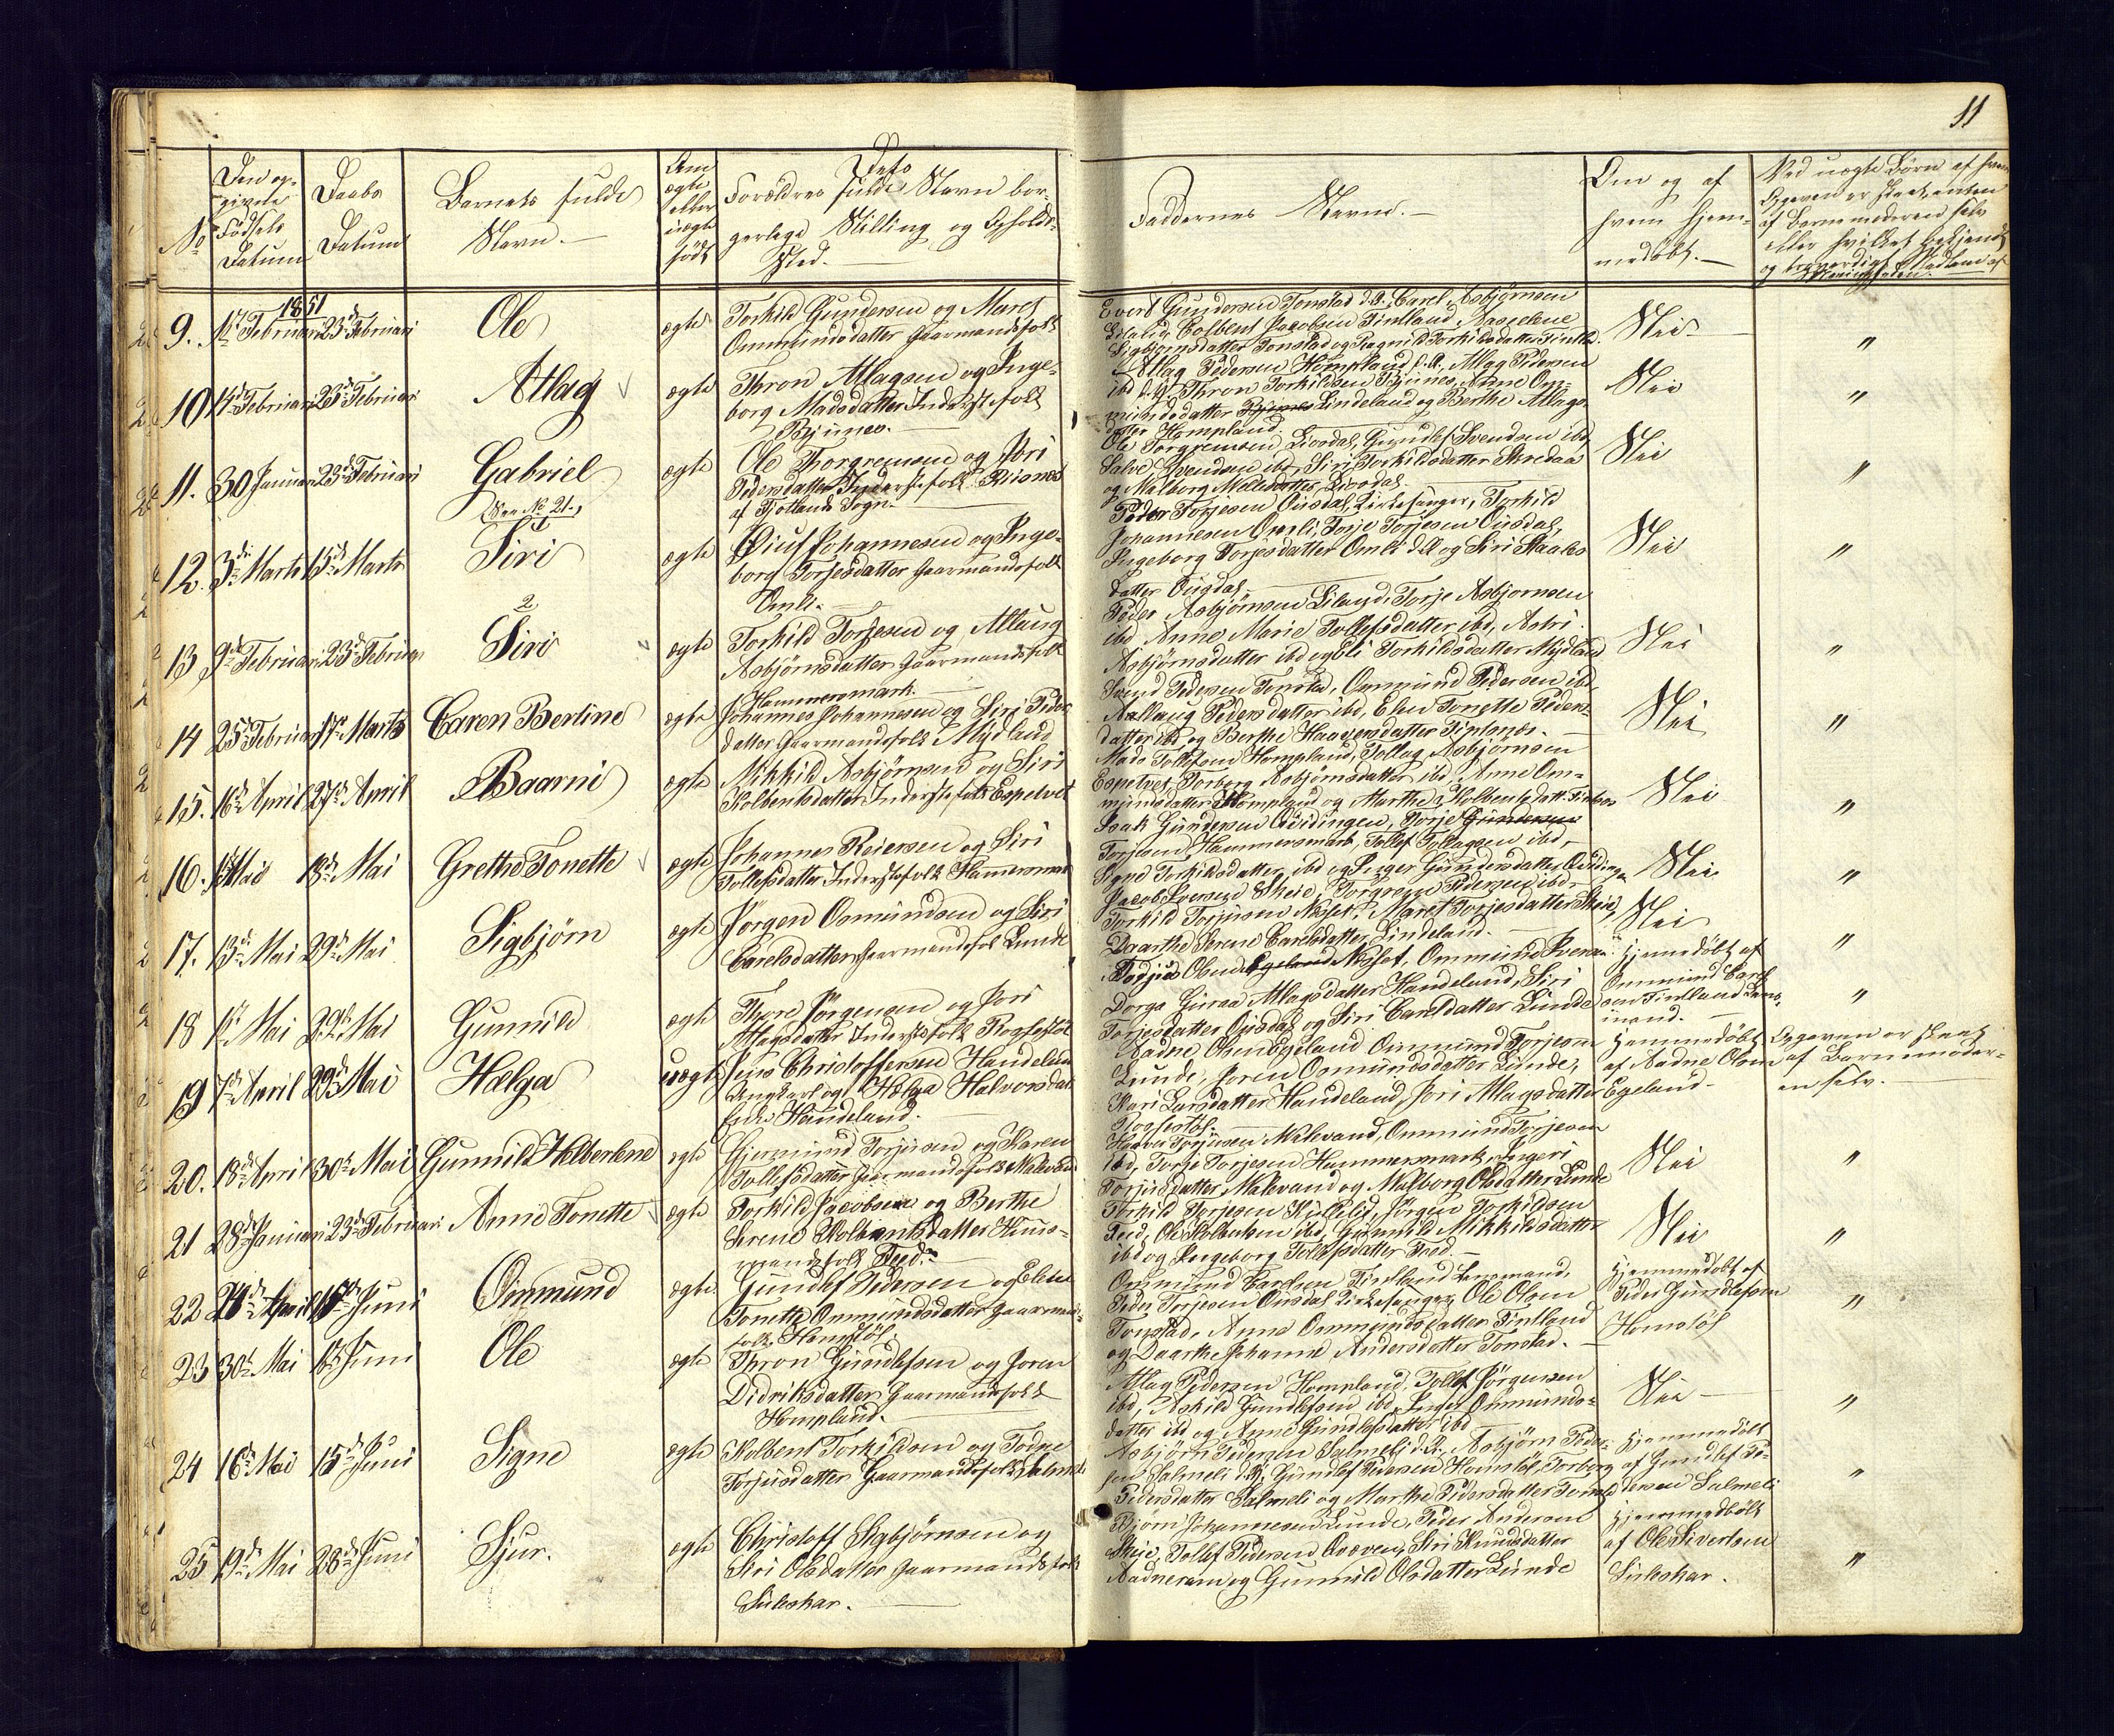 11
No
Den op-
givne
Fødsels
Datum
Daabs
Datum
Barnets fulde
Navn.
Om
ægte
eller
uægte
født
Dets
Forældres fulde Navn bor-
gerlige Stilling og Opholds-
Sted.
Faddernes Navne.
Om og af
hvem hjem-
medøbt.
Ved uægte Børn af hvem
Opgaven er skeet, enten
af Barnemoderen selv
eller hvilket bekjendt
og troværdigt Medlem af
Menigheden.
1851
9. 1ste Februari 23de Februari
Ole
ægte
Torkild Gundersen og Maret
Ommundsdatter Gaarmandsfolk
Evert Gundersen Tonstad d.Æ., Carel Asbjörnsen
Liland, Colbent Jacobsen Fintland,
Sigbjörnsdatter Tonstad og Ragnild Torkildsdatter Fintl.
Nei
"
10 14de Februari 23de Februari
Atlag
ægte
Thron Atlagsen og Inge-
borg Madsdatter Inderstefolk
Bjunes.
Atlag Pedersen Hompland d.Æ., Atlag Pedersen
ibd d.Y., Thron Torkildsen Bjunes, Anne Om-
mundsdatter Bjunes Lindeland og Berthe Atlags-
datter Hompland.
Nei
"
11. 30 Januari 23de Februari
Gabriel
(See No 21.)
ægte
Ole Thorgremsen og Jöri
Pedersdatter Inderstefolk Riisnes
af Fjotlands Sogn.
Ole Torgremsen Liosdal, Gundlef Svendsen ibd,
Salve Svendsen ibd, Siri Torkildsdatter Skredaa
og Malborg Liosdal.
Nei
"
12. 3die Marts 15de Marts
Siri
ægte
Öiuf Johannesen og Inge-
borg Torjesdatter Gaarmandsfolk
Omli.
Peder Torjesen Ousdal, Kirkesanger, Torkild
Johannesen Omli, Torje Torjesen Ousdal,
Ingeborg Torjesdatter Omli d.Æ og Siri
datter Ousdal.
Nei
"
13 9de Februari 23de Februari
2
Siri
ægte
Torkild Torjesen og Atlaug
Asbjörnsdatter Gaarmandsfolk
Hammersmark.
Peder Asbjörnsen Liland, Torje Asbjornsen
ibd Anne Marie Tollefsdatter ibd, Astri
Asbjörnsdatter ibd og Eli Torkildsdatter Mydland
Nei
"
14 25de Februari 17de Marts
Caren Bertine
ægte
Johannes Johannesen og Siri Peders
datter Gaarmandsfolk Mydland
Svend Pedersen Tonstad, Ommund Pedersen ibd,
Aallaug Pedersdatter ibd, Elen Tonette Peders-
datter ibd og Berthe Haaversdatter
Nei
"
15. 16de April 27de April
Baarni
ægte
Mikkild Asbjörnsen og Siri
Kolbentsdatter Inderstefolk Espetvet
Mads Tollefsen Hompland, Tollag Asbjörnsen
Espetvet, Torborg Asbjörnsdatter ibd, Anne Om-
mundsdatter Hompland og Marthe Kolbentsdatt.
Nei
"
16. Mai 18de Mai
Grethe Tonette
ægte
Johannes Reiersen og Siri
Tollefsdatter Inderstefolk Hammersmark
Isak Gundersen Qvidingen, Torje Gundersen
Torjesen Hammersmark, Tollef Tollagsen ibd,
Torkildsdatter ibd og Inger Gundersdatter Qvidingen
Nei
"
17. 13de Mai 29de Mai
Sigbjörn
ægte
Jörgen Osmundsen og Siri
Carelsdatter Gaarmandsfolk Lunde
Jacob Iversen Skeie, Torgrem Pedersen ibd,
Torkild Torjussen Næset, Maret Torjesdatter Skeie,
Daarthe Serene Carelsdatter Lindeland.
Nei
"
18 1ste Mai 29de Mai
Gunnild
ægte
Thore Jörgensen og Jöri
Atlagsdatter Inderstefolk
Tarjus Olsen Egeland Næset, Ommund Iversen
Dorge Guroa Atlagsdatter Handeland, Siri
Torjesdatter Ousdal og Siri Carelsdatter Lunde
Hjemmedöbt af
Ommund Carel-
sen Fintland Lens-
mand.
"
19 7de April 29de Mai
Hælga
uægte
Jens Christoffersen Handeland
Ungkarl og Hælga Halvorsdat
Handeland.
Aadne Olsen Egeland Ommund Torjesen
Lunde, Joren Osmundsdatter Lunde,
Kari Larsdatter Handeland, Jöri Atlagsdatter
Hjemmedöbt
af Aadne Olsen
Egeland
Opgaven er skeet
af Barnemoder-
en selv.
20. 18de April 30te Mai
Gunnild Helberlene
ægte
Gjermund Torjusen og Karen
Tollefsdatter Gaarmandsfolk Netland
Haaver Torjusen Netland, Ommund Torjesen
ibd, Torje Torjesen Hammersmark, Ingeri
Torjusdatter Netland og Malborg Olsdatter Lunde
Nei
"
21 28de Januari 23de Februari
Anne Tonette
ægte
Torkild Jacobsen og Berthe
Serene Kolbentsdatter Huus-
mandsfolk Feed.
Torkild Torjesen Kirkelid, Jörgen Torkildsen
Feed, Ole Kolbentsen ibd, Gunnild Mikkilsdatter
ibd og Ingeborg Tollefsdatter Feed.
Nei
"
22 24de April 15de Juni
Ommund
ægte
Gundlef Pedersen og Elen
Tonette Ommundsdatter Gaarmands-
folk Homstöl
Ommund Carelsen Fintland Lensmand,
Peder Torjesen Ousdal Kirkesanger, Ole Olsen
Tonstad, Anne Ommundsdatter Fintland
og Daarthe Johanne Andersdatter Tonstad.
Hjemmedöbt af
Peder Gundlefsen
Homstöl
"
23 30te Mai 15de Juni
Ole
ægte
Thron Gundlefsen og Joren
Didriksdatter Gaarmandsfolk
Hompland.
Atlag Pedersen Hompland, Tollef Jörgensen
ibd, Askild Gundlefsen ibd, Inger Ommunds-
datter ibd og Anne Gundlefsdatter ibd
Nei
"
24 16de Mai 15de Juni
Signe
ægte
Kolbent Torkildsen og Todne
Torjusdatter Gaarmandsfolk Salmeli
Asbjörn Pedersen Salmeli d.Æ., Asbjörn Peder-
sen Salmeli d.Y., Gundlef Pedersen Homstöl, Torborg
Pedersdatter Salmeli og Marthe Pedersdatter Tonstad
Hjemmedöbt
af Gundlef Pe-
dersen Salmeli
"
25 19de Mai 28de Juni
Sjur.
ægte
Christoff Sigbjörnsen og
Siri Olsdatter Gaarmandsfolk
Suleskar.
Björn Johannesen Lunde, Peder Andersen
Skeie, Tollef Pedersen Qvæven, Siri Knudsdatter
Aadneram og Gunnild Olsdatter Lunde
Hjemmedöbt
af Ole Sivertsen
Suleskar.
"